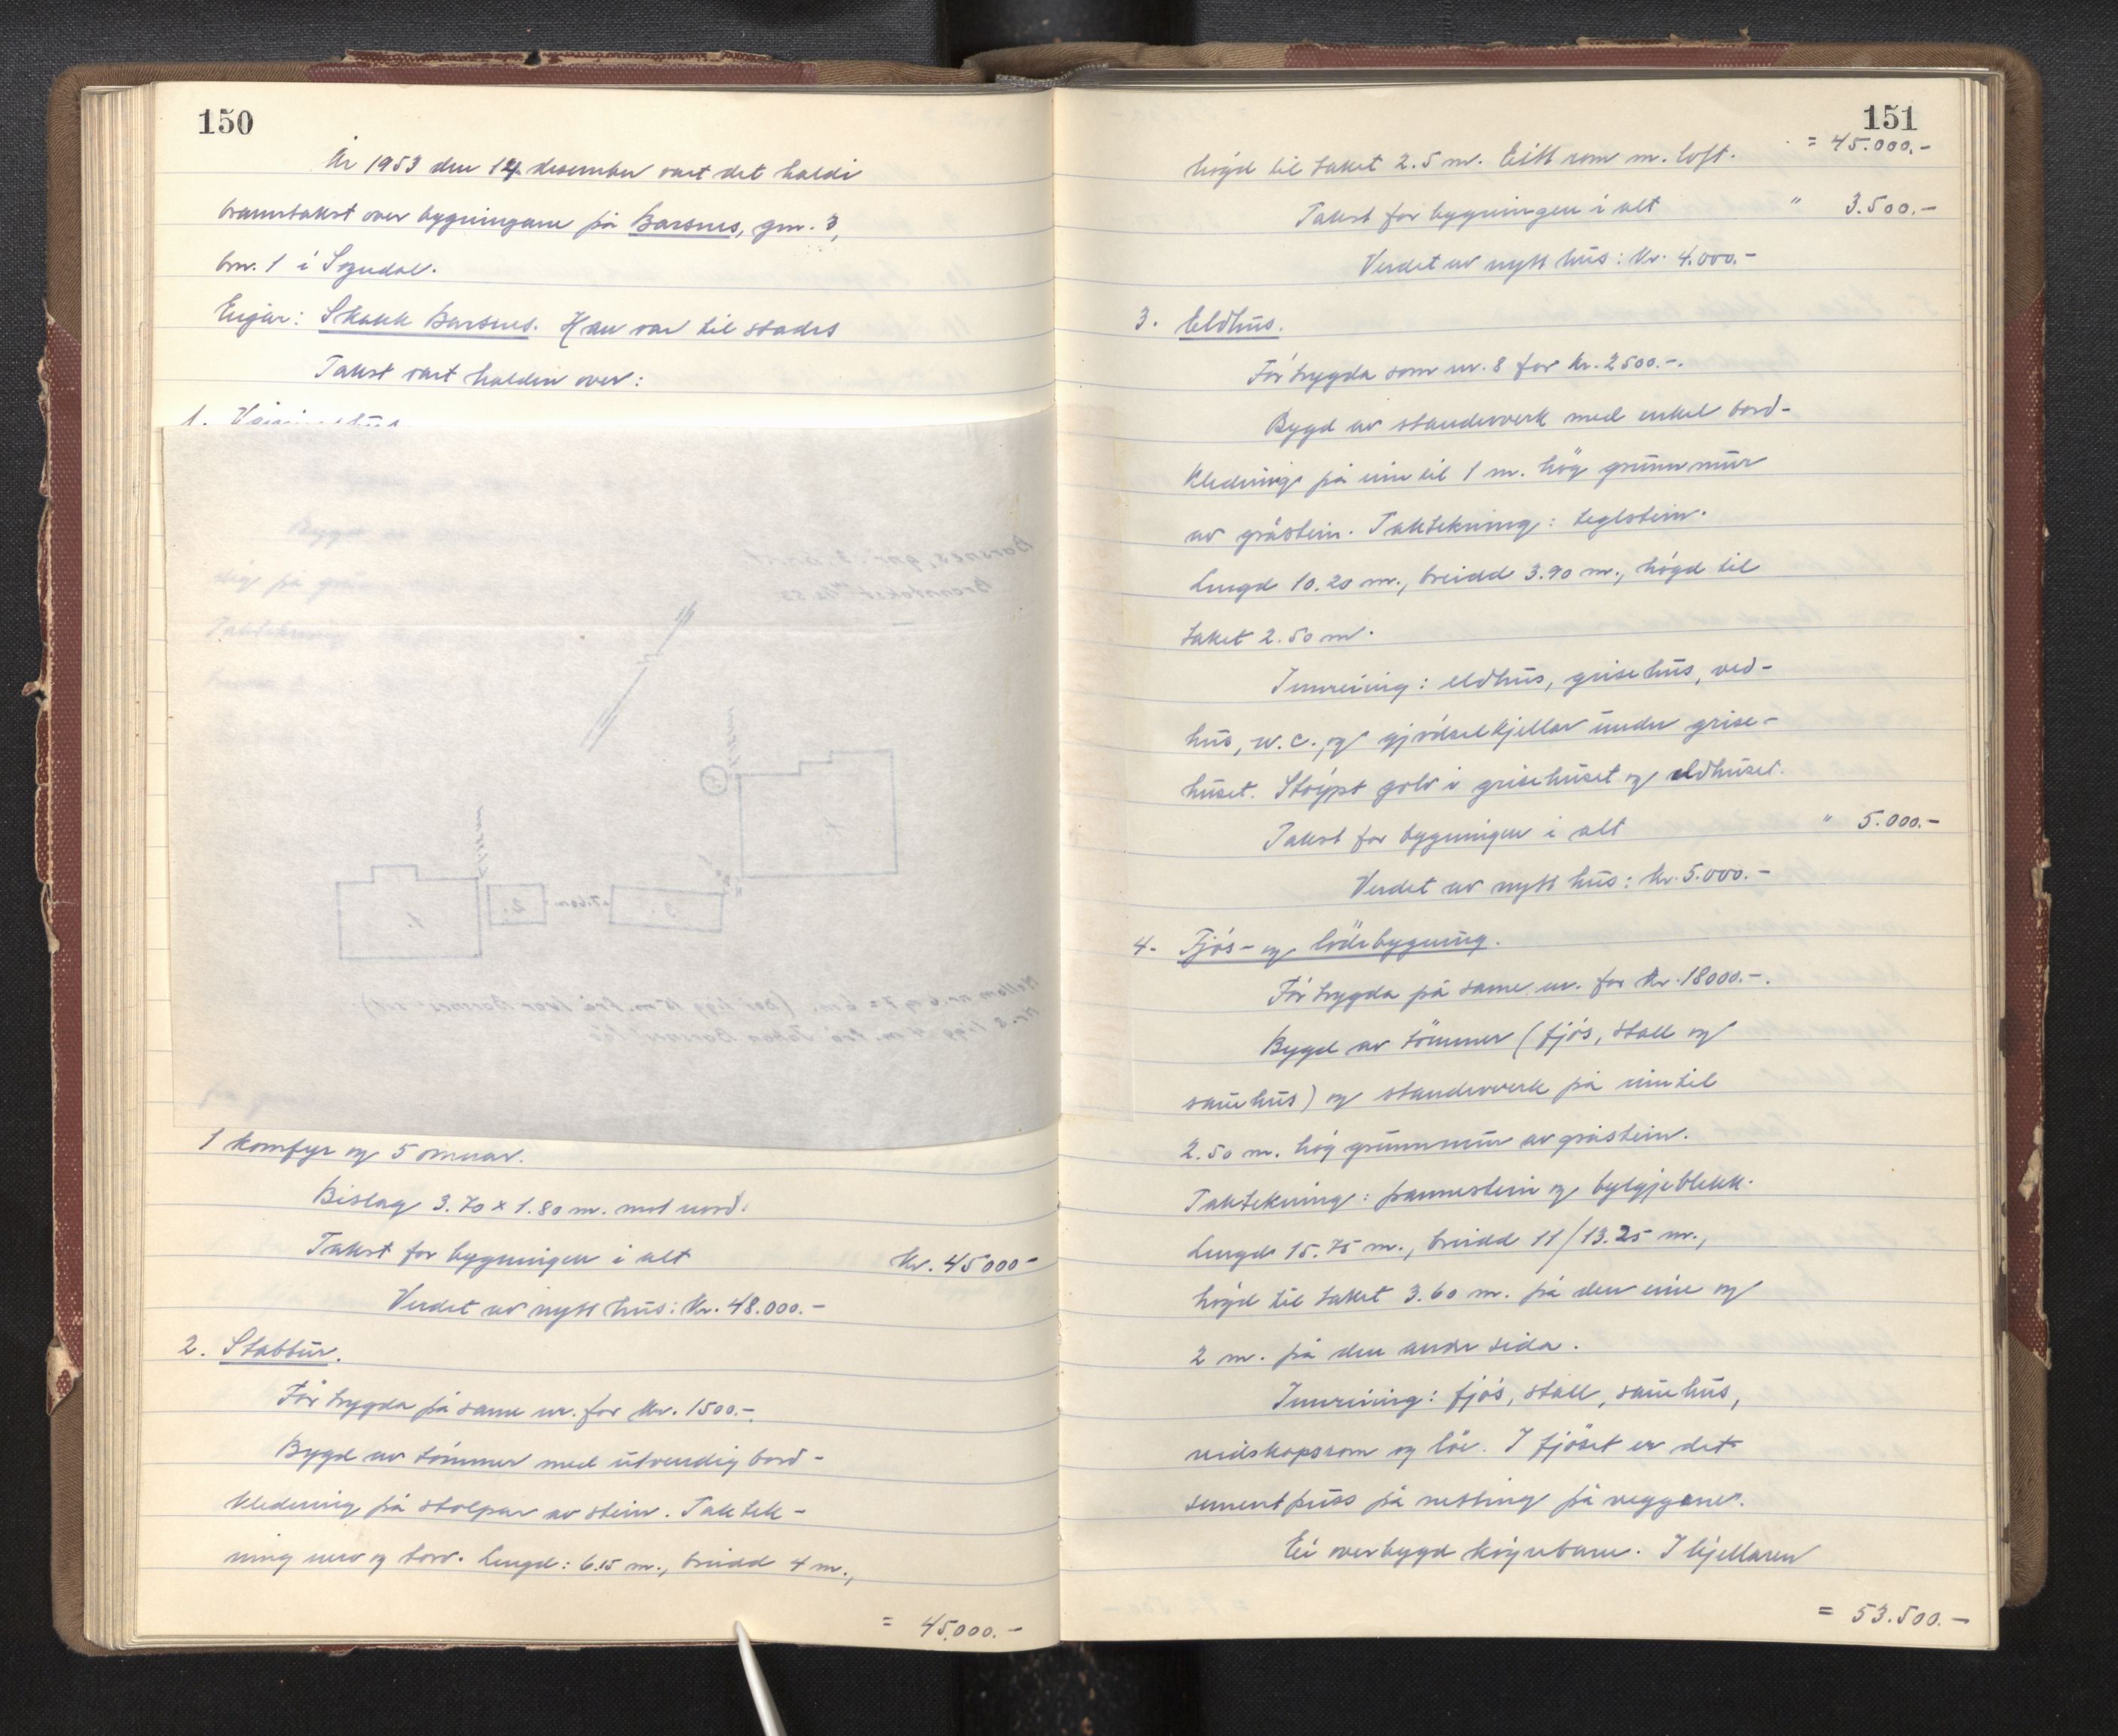 150
År 1953 den 14. desember vart det haldi
branntakst over bygningane på Barsnes, gnr. 3,
bnr. 1 i Sogndal.
Eigar: Skakk Barsnes. Han var til stades
Takst vart halden over:
1. Våningshus
Barsnes, gnr 3 bnr 1
Branntakst
4.
1.
2.
7.60m
3.
Mellom nr. 6 og 7 = 6 m. (Dei ligg 15 m. frå Ivar Barsnes
Nr. 8 ligg 4 m. frå Johan Barsnes
1 komfyr og 5 omnar.
Bislag 3.70 x 1.80 m. mot nord.
Takst for bygningen i alt kr. 45000-
Verdet av nytt hus: Kr. 48.000.-
2. Stabbur.
Før trygda på same nr. for Kr. 1500.-.
Bygd av tømmer med utvendig bord-
kledning på stolpar av stein. Taktek-
ning never og torv. Lengd: 6.15 m., breidd 4 m.,
= 45.000.-
151
= 45.000.-
høgd til taket 2.5 m. Eitt rom m. loft.
Takst for bygningen i alt " 3.500.-
Verdet av nytt hus: Kr. 4.000.-
3. Eldhus.
Før trygda som nr. 8 for kr. 2500.-.
Bygd av standerverk med enkel bord-
kledning på inntil 1 m. høg grunnmur
av gråstein. Taktekning: teglstein.
Lengd 10.20 m., breidd 3.90 m., høgd til
taket 2.50 m.
Innreiing: eldhus, grisehus, ved-
hus, w.c., og gjødselkjellar under grise-
huset. Støypt golv i grisehuset og eldhuset.
Takst for bygningen i alt " 5.000.-
Verdet av nytt hus: Kr. 5.000.-
4. Fjøs- og lødebygning.
Før trygda på same nr. for Kr. 18000.-.
Bygd av tømmer (fjøs, stall og
sauehus) og standerverk på inntil
2.50 m. høg grunnmur av gråstein.
Taktekning: pannestein og bylgjeblekk.
Lengd 15.75 m., breidd 11/13.25 m.,
høgd til taket 3.60 m. på den eine og
2 m. på den andre sida.
Innreiing: fjøs, stall, sauehus,
reidskapsrom og løe. I fjøset er det
sementpuss på netting på veggane.
Ei overbygd køyrebru. I kjellaren
= 53.500.-